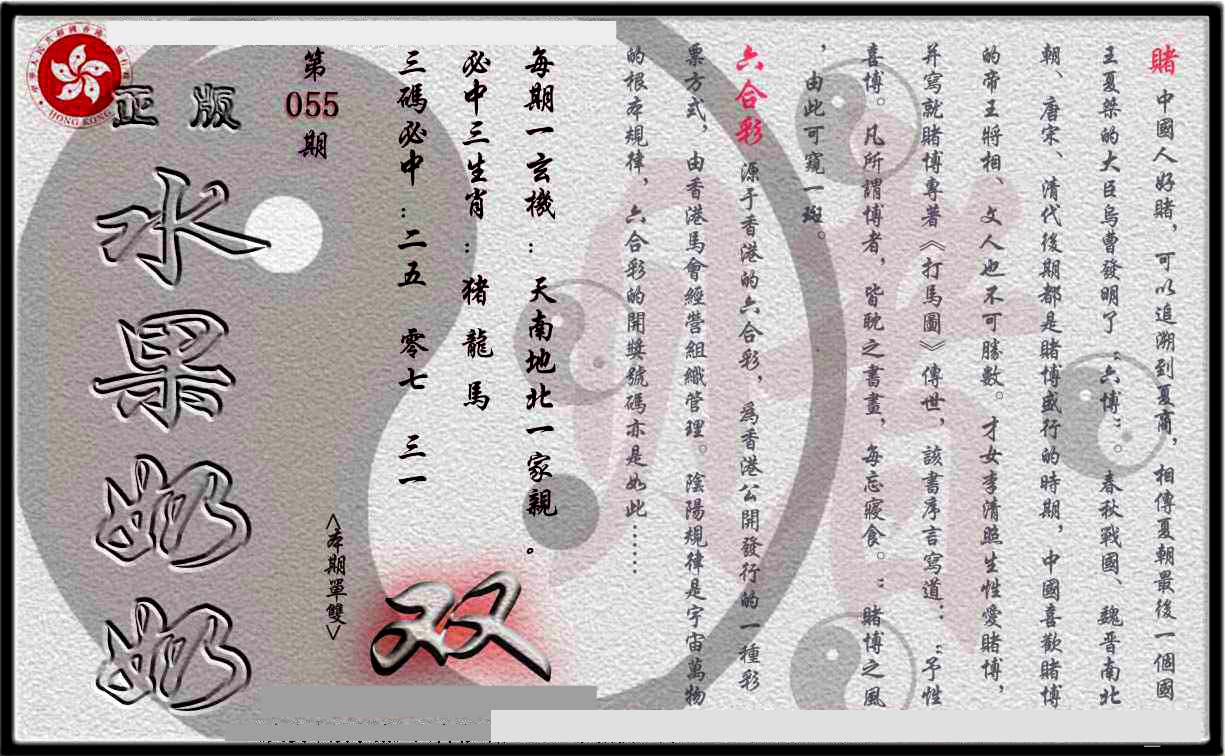 賭 中國人好賭，可以追溯到夏商，相傳夏朝最後一個國
王夏桀的大臣烏曹發明了“六博”。春秋戰國、魏晋南北
朝、唐宋、清代後期都是賭博盛行的時期，中國喜歡賭博
的帝王將相、文人也不可勝數。才女李清照生性愛賭博，
并寫就賭博專著《打馬圖》傳世，該書序言寫道：“予性
喜博。凡所謂博者，皆耽之書晝，每忘寢食。”賭博之風
，由此可窺一斑。
六合彩 源于香港的六合彩，爲香港公開發行的一種彩
票方式，由香港馬會經營組織管理。陰陽規律是宇宙萬物
的根本規律，六合彩的開獎號碼亦是如此……
每期一玄機：天南地北一家親。
必中三生肖：猪 龍 馬
三碼必中：二五 零七 三一
<本期單雙>
双
第
055
期
正版
水果奶奶
HONG KONG